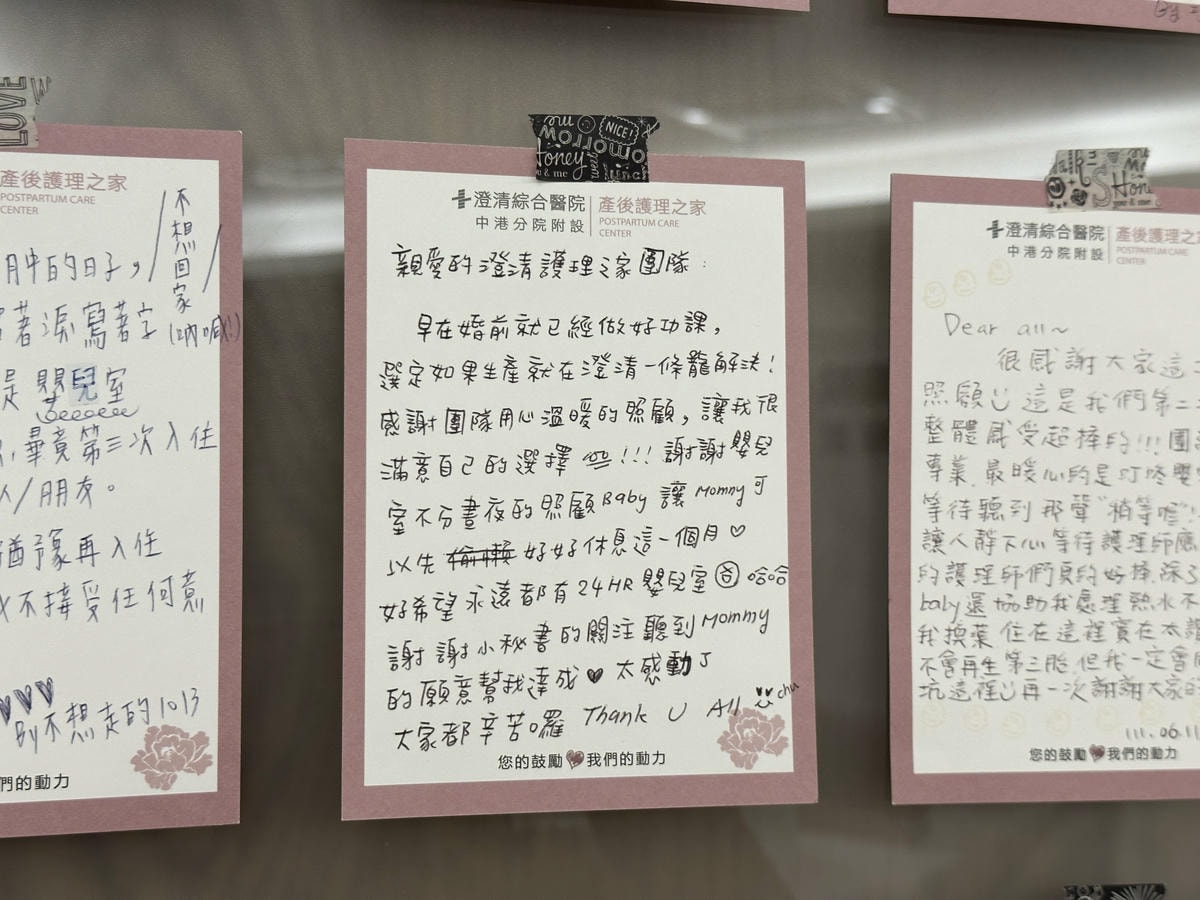 LOVE
產後護理之家
POSTPARTUM CARE
CENTER
不想回家
的日子,
著淚寫著字 (吶喊!!)
是嬰兒室
畢竟第三次入住
人/朋友。
猶豫再入住
不接受任何意
By不想走的1013
們的動力
NICE!
澄清綜合醫院
中港分院附設
產後護理之家
POSTPARTUM CARE
CENTER
親愛的澄清護理之家團隊:
早在婚前就已經做好功課,
選定如果生產就在澄清一條龍解決!
感謝團隊用心溫暖的照顧,讓我很
滿意自己的選擇 !!! 謝謝嬰兒
室不分晝夜的照顧Baby 讓Mommy可
以先偷懶好好休息這一個月♡
好希望永遠都有24HR嬰兒室 哈哈
謝謝小秘書的關注聽到Mommy
的願意幫我達成♥太感動了
大家都辛苦囉 Thank U All chu
您的鼓勵 我們的動力
澄清綜合醫院
中港分院附設
產後護理之
POSTPARTUM CARE
CENTER
Dear all~
很感謝大家這
照顧 這是我們第二
整體感受超棒的!!!團
專業,最暖心的是叮咚嬰
等待聽到那聲"稍等喔"
讓人靜下心等待護理師應
的護理師們真的好棒,除了
baby還協助我處理熱水不
我換藥 住在這裡實在太讚
不會再生第三胎,但我一定會
坑這裡 再一次謝謝大家的
111.06.11
您的鼓勵 我們的動